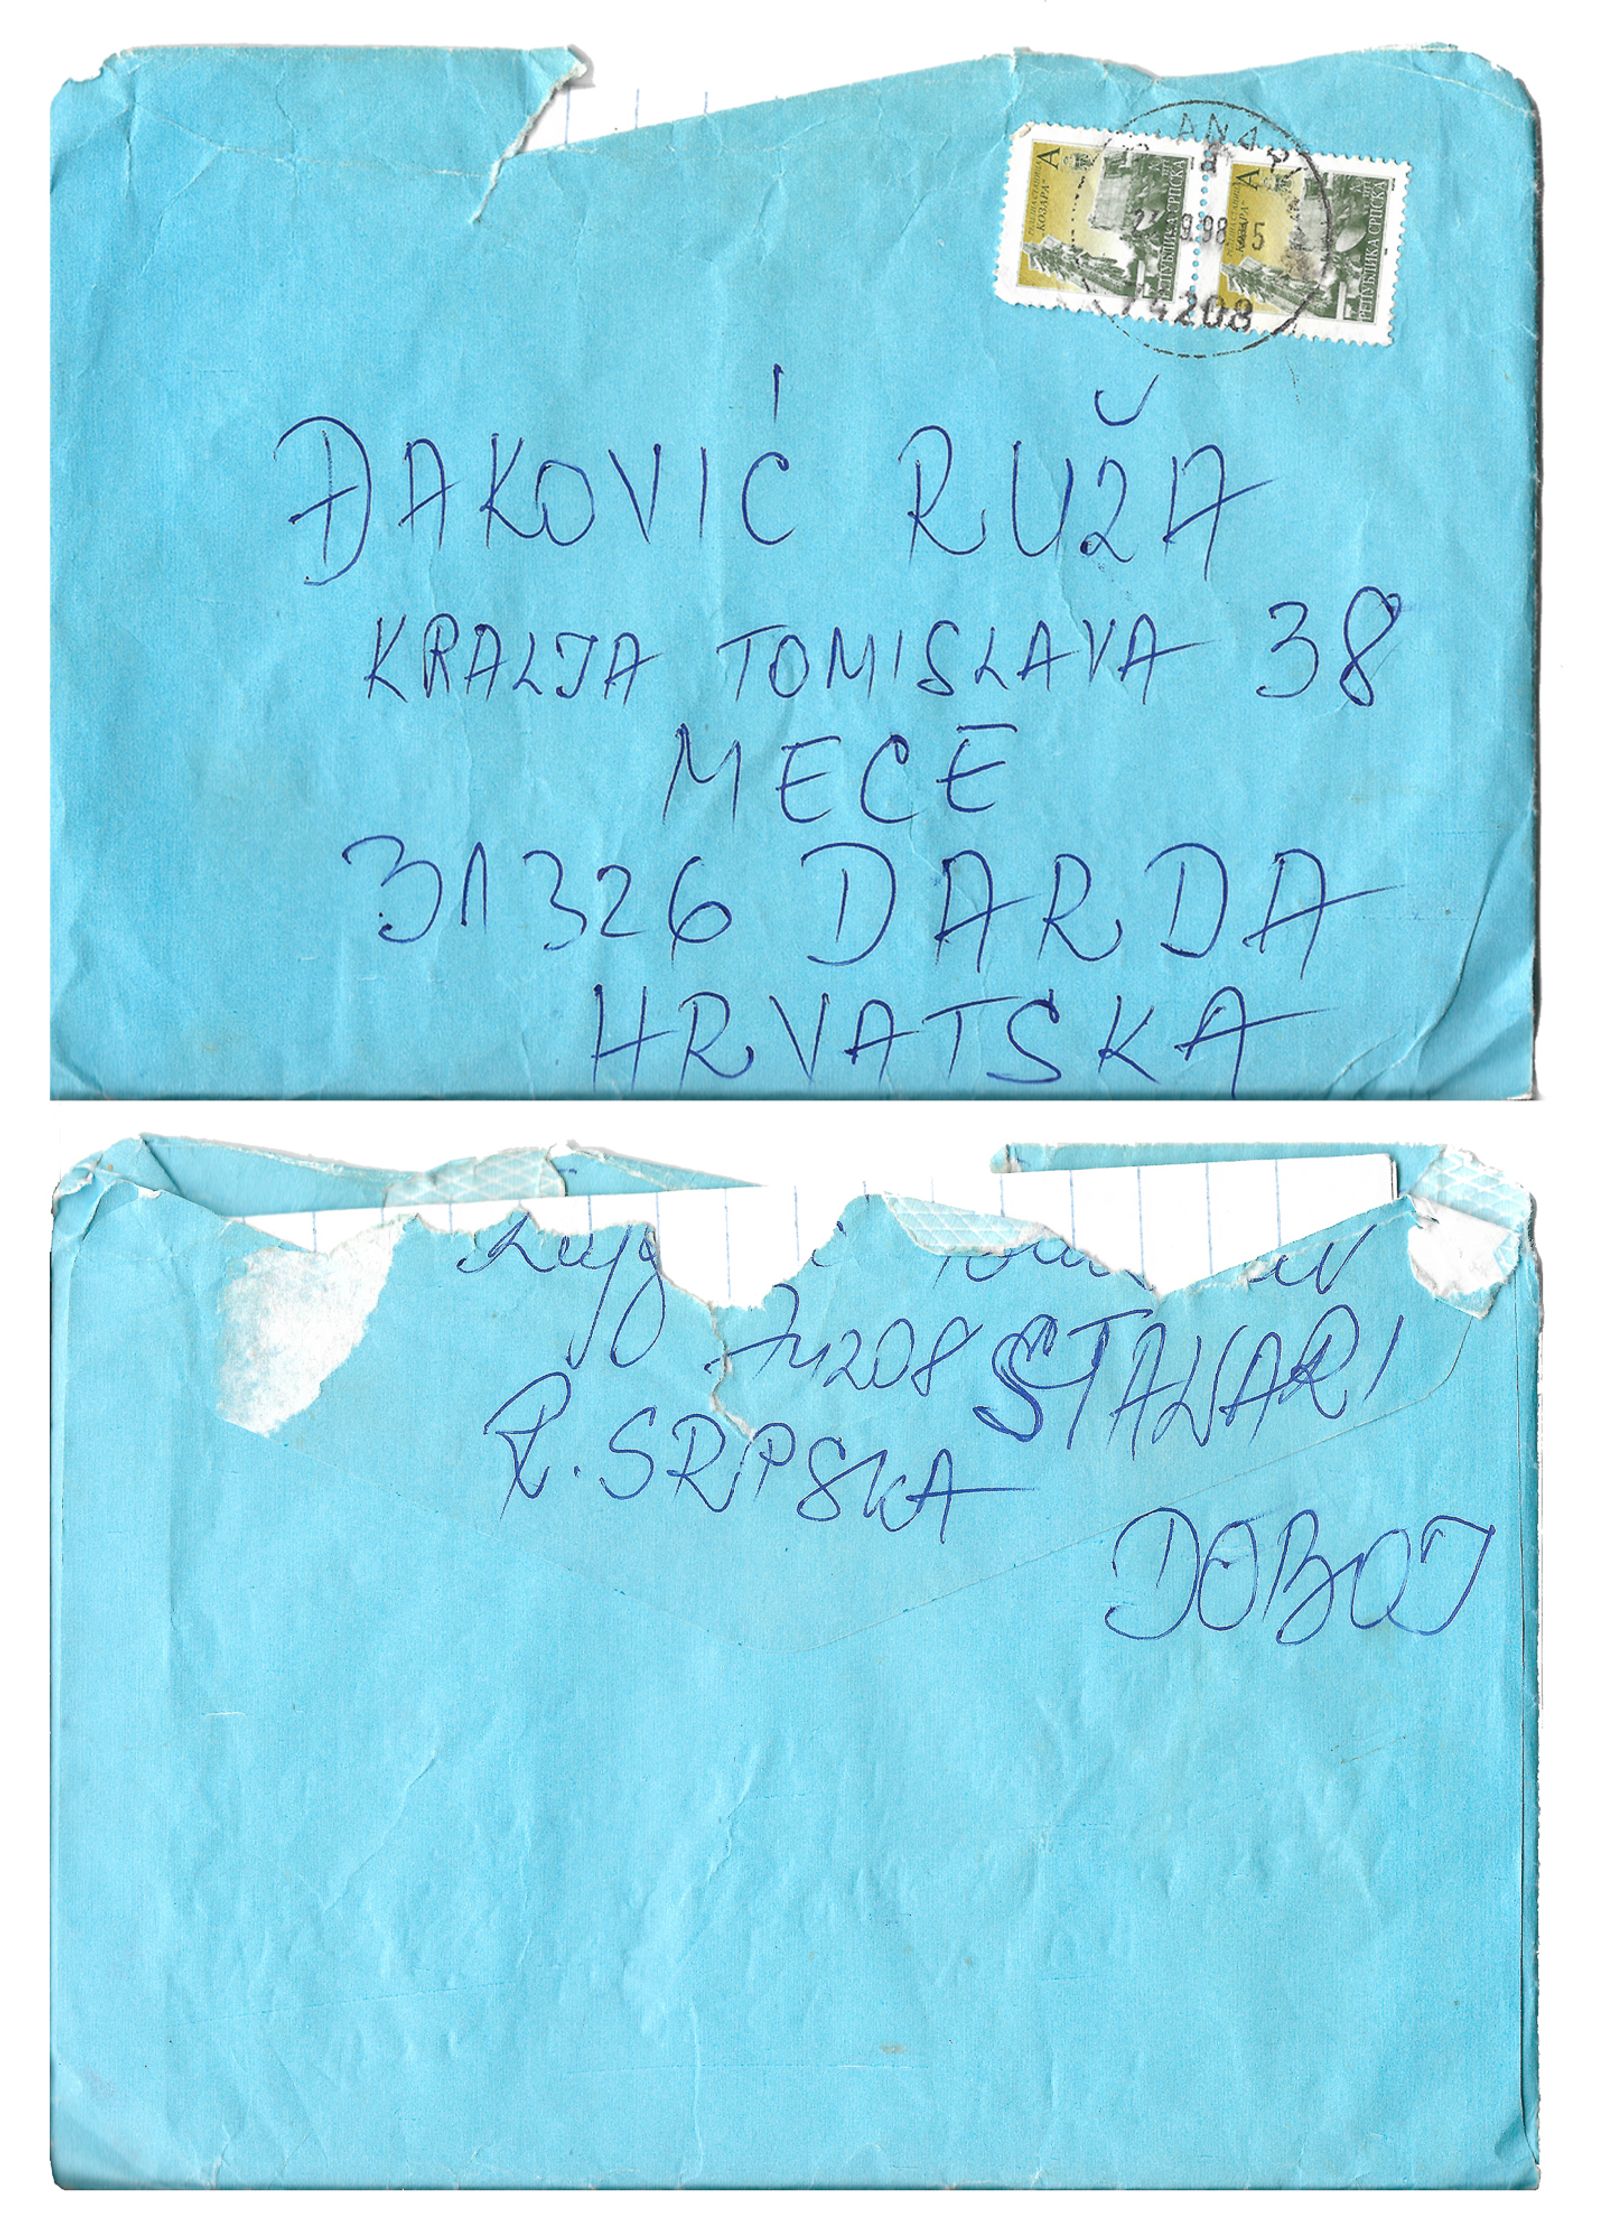 А А
"КОЗАРА" "КОЗАРА"
РЕПУБЛИКА СРПСКА РЕПУБЛИКА СРПСКА
9.98 5
74208
ĐAKOVIĆ RUŽA
KRALJA TOMISLAVA 38
MECE
31326 DARDA
HRVATSKA
74208 STANARI
R. SRPSKA
DOBOJ